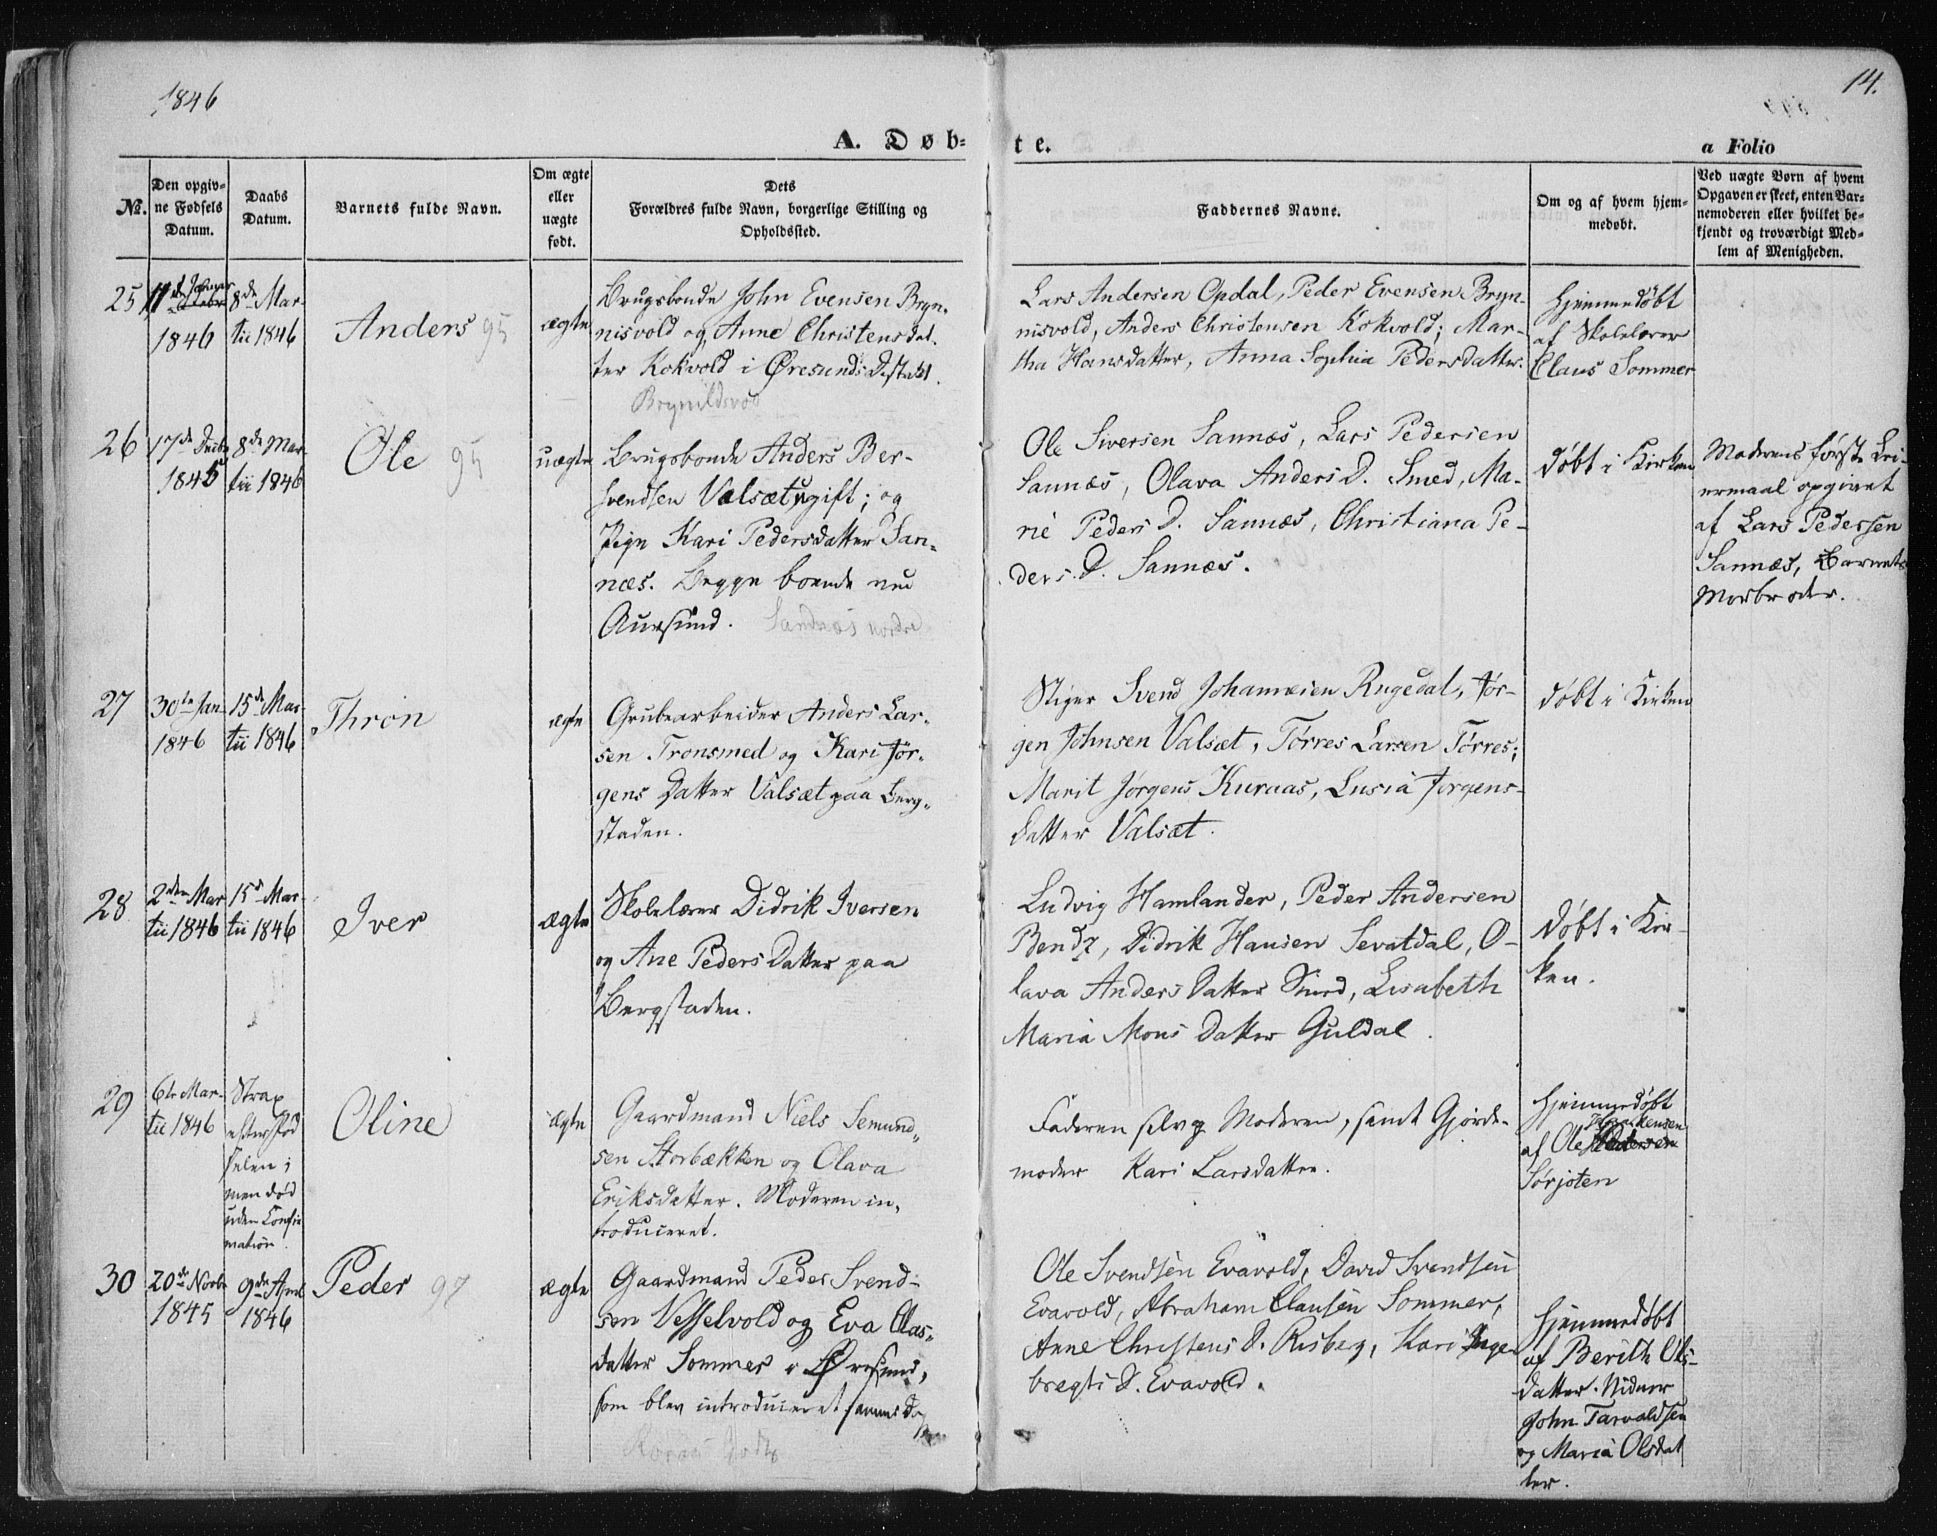 1846
14.
A. Døb=
te.
a Folio
No.
Den opgiv=
ne Fødsels
Datum.
Daabs
Datum.
Barnets fulde Navn.
Om ægte
eller
uægte
født.
Dets
Forældres fulde Navn, borgerlige Stilling og
Opholdssted.
Faddernes Navne.
Om og af hvem hjem=
medøbt.
Ved uægte Børn af hvem
Opgaven er skeet, enten Bar=
nemoderen eller hvilket be=
kjendt og troværdigt Med=
lem af Menigheden.
25
11te
1846
8de Mar-
tii 1846
Anders 95
ægte
Brugsbonde John Evensen Bryn-
nisvold og Anne Christensdat-
ter Kokvold i Øresunds
Brynildsvold
Lars Andersen Opdal, Peder Evensen Bryn-
nisvold, Anders Christensen Kokvold; Mar-
tha Hansdatter, Anna Sophia Pedersdatter.
Hjemmedøbt
af Skolelærer
Claus Sommer
26
17de Decbr
1845
8de Mar-
tii 1846
Ole 95
uægte
Brugsbonde Anders Ber-
svendsen Valsæt, ugift; og
Pige Kari Pedersdatter San-
næs. Begge boende ved
Aursund. Sandnæs nordre
Ole Siversen Sannæs, Lars Pedersen
Sannæs, Olava Anders D. Smed, Ma-
rie Peders D. Sannæs, Christiana Pe-
ders. D. Sannæs.
døbt i Kirken
Moderens første Lei-
ermaal opgivet
af Lars Pedersen
Sannæs, Barnets
Morbroder.
27
30te Jan
1846
15de Mar-
tii 1846
Thron
ægte
Grubearbeider Anders Lar-
sen Tronsmed og Kari Jør-
gens Datter Valsæt paa Berg-
staden.
Stiger Svend Johannesen Rugedal, Jør-
gen Johnsen Valsæt, Tørres Larsen Tørres;
Marit Jørgens Kuraas, Lusia Jørgens-
datter Valsæt.
døbt i Kirken
28
2den Mar
tii 1846
15d Mar-
tii 1846
Iver
ægte
Skolelærer Didrik Iversen
og Ane Peders Datter paa
Bergstaden.
Ludvig Hamlander, Peder Andersen
Bendz, Didrik Hansen Sevatdal, O-
lava Anders Datter Smed, Lisabeth
Maria Mons Datter Guldal.
døbt i Kir-
ken.
29
6te Mar-
tii 1846
Strax
efter Fød
selen;
men død
uden Confir
mation.
Oline
ægte
Gaardmand Niels Semund-
sen Storbækken og Olava
Eriksdatter. Moderen in-
troduceret.
Faderen selv og Moderen, samt Gjorde-
moder Kari Larsdatter.
Hjemmedøbt
af Ole
Sørjoten
30
20de Novbr
1845
9de April
1846
Peder 97
ægte
Gaardmand Peder Svend-
sen Vesselvold og Eva Claus-
datter Sommer i Øresund,
som blev introduceret samme Dag
Ole Svendsen Evavold, David Svendsen
Evavold, Abraham Clausen Sommer,
Anne Christens D. Risberg, Kari Inge-
bregts D. Evavold.
Hjemmedøbt
af Berith Ols-
datter. Vidner
John Tarvaldsen
og Maria Olsdat
ter.